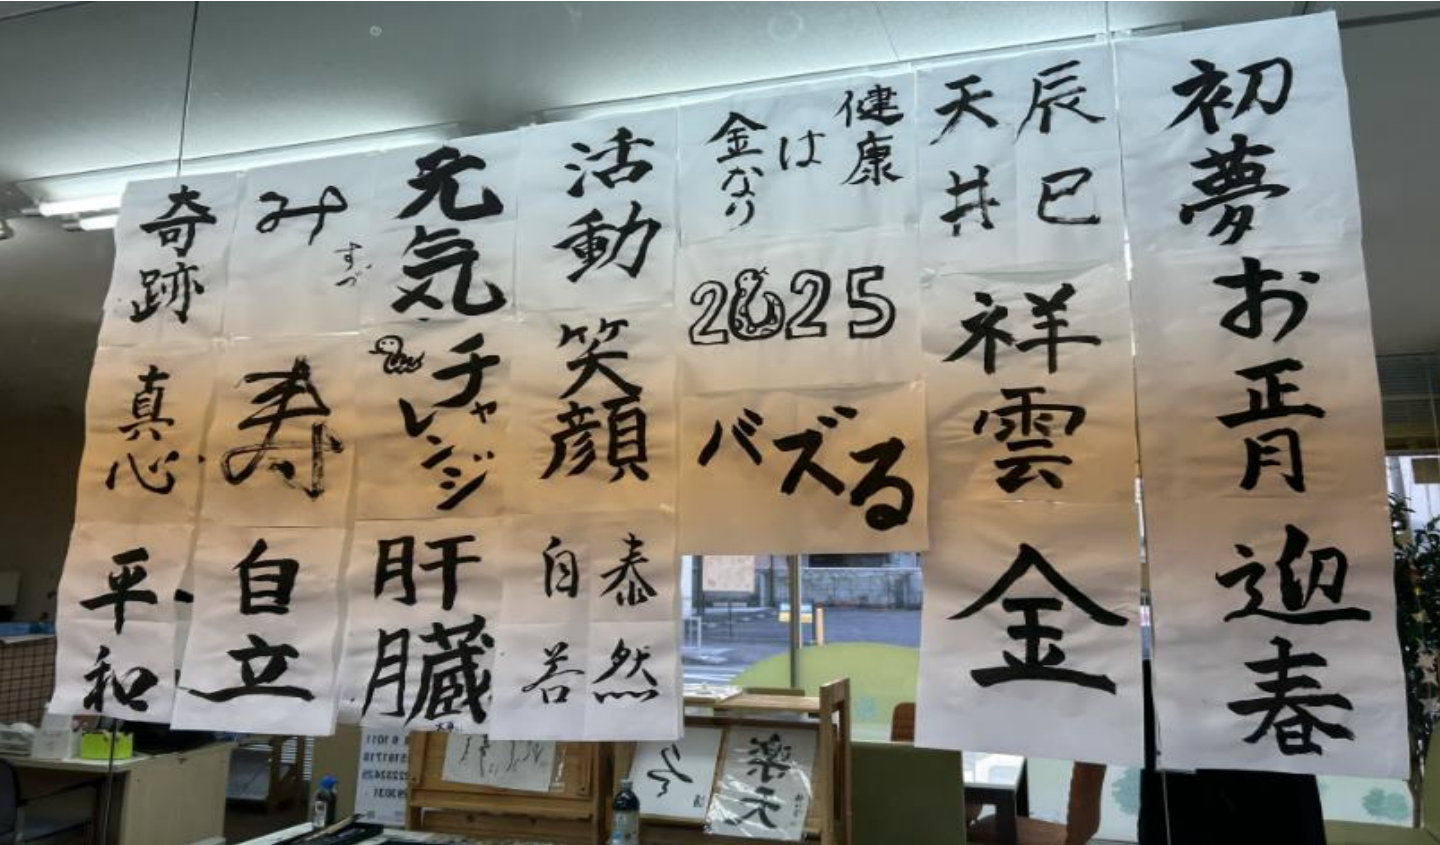 初夢
お正月
迎春
辰巳
天井
祥雲
金
健康
は
金なり
2025
バズる
活動
笑顔
泰然
自若
元気
チャレンジ
肝臓
み
すゞ
寿
自立
奇跡
真心
平和
楽天